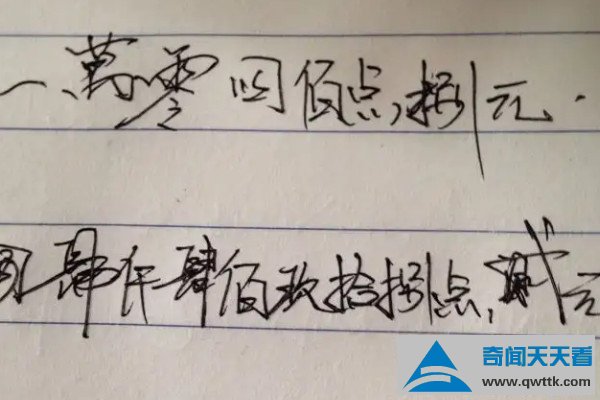 一萬零四佰点捌元.
肆仟肆佰玖拾捌点,贰元
奇闻天天看
www.qwttk.com